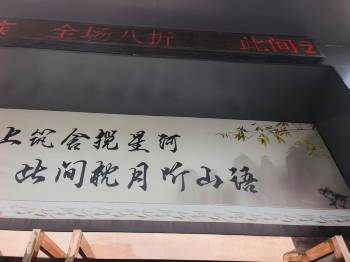 全场八折 此间
上筑舍揽星河
此间枕月听山语